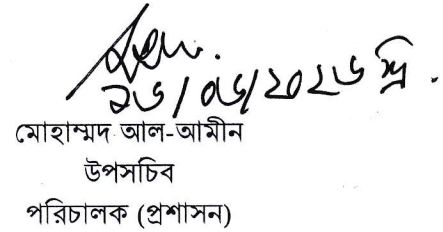 ১৬/০৬/২০২৬ খ্রি.
মোহাম্মদ আল-আমীন
উপসচিব
পরিচালক (প্রশাসন)